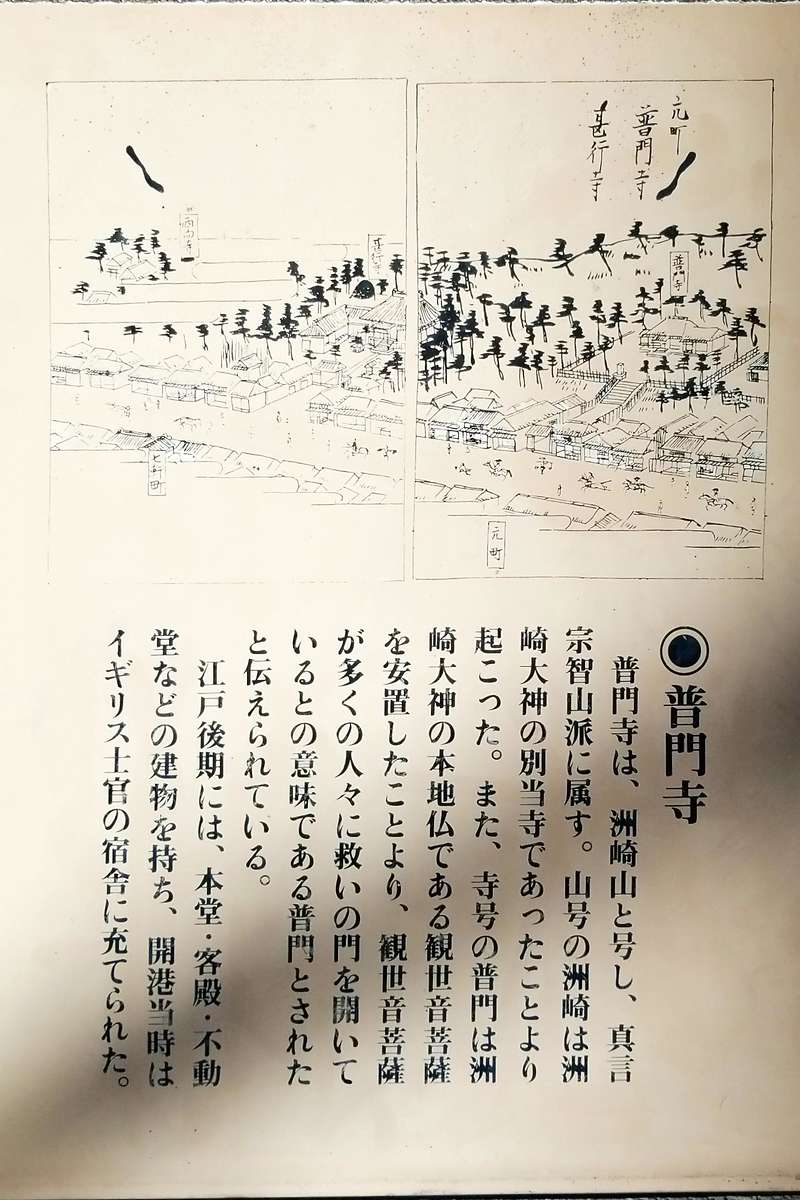 元町
普門寺
甚行寺
普門寺
元町
甚行寺
七軒町
◉普門寺
普門寺は、洲崎山と号し、真言
宗智山派に属す。山号の洲崎は洲
崎大神の別当寺であったことより
起こった。また、寺号の普門は洲
崎大神の本地仏である観世音菩薩
を安置したことより、観世音菩薩
が多くの人々に救いの門を開いて
いるとの意味である普門とされた
と伝えられている。
江戸後期には、本堂・客殿・不動
堂などの建物を持ち、開港当時は
イギリス士官の宿舎に充てられた。